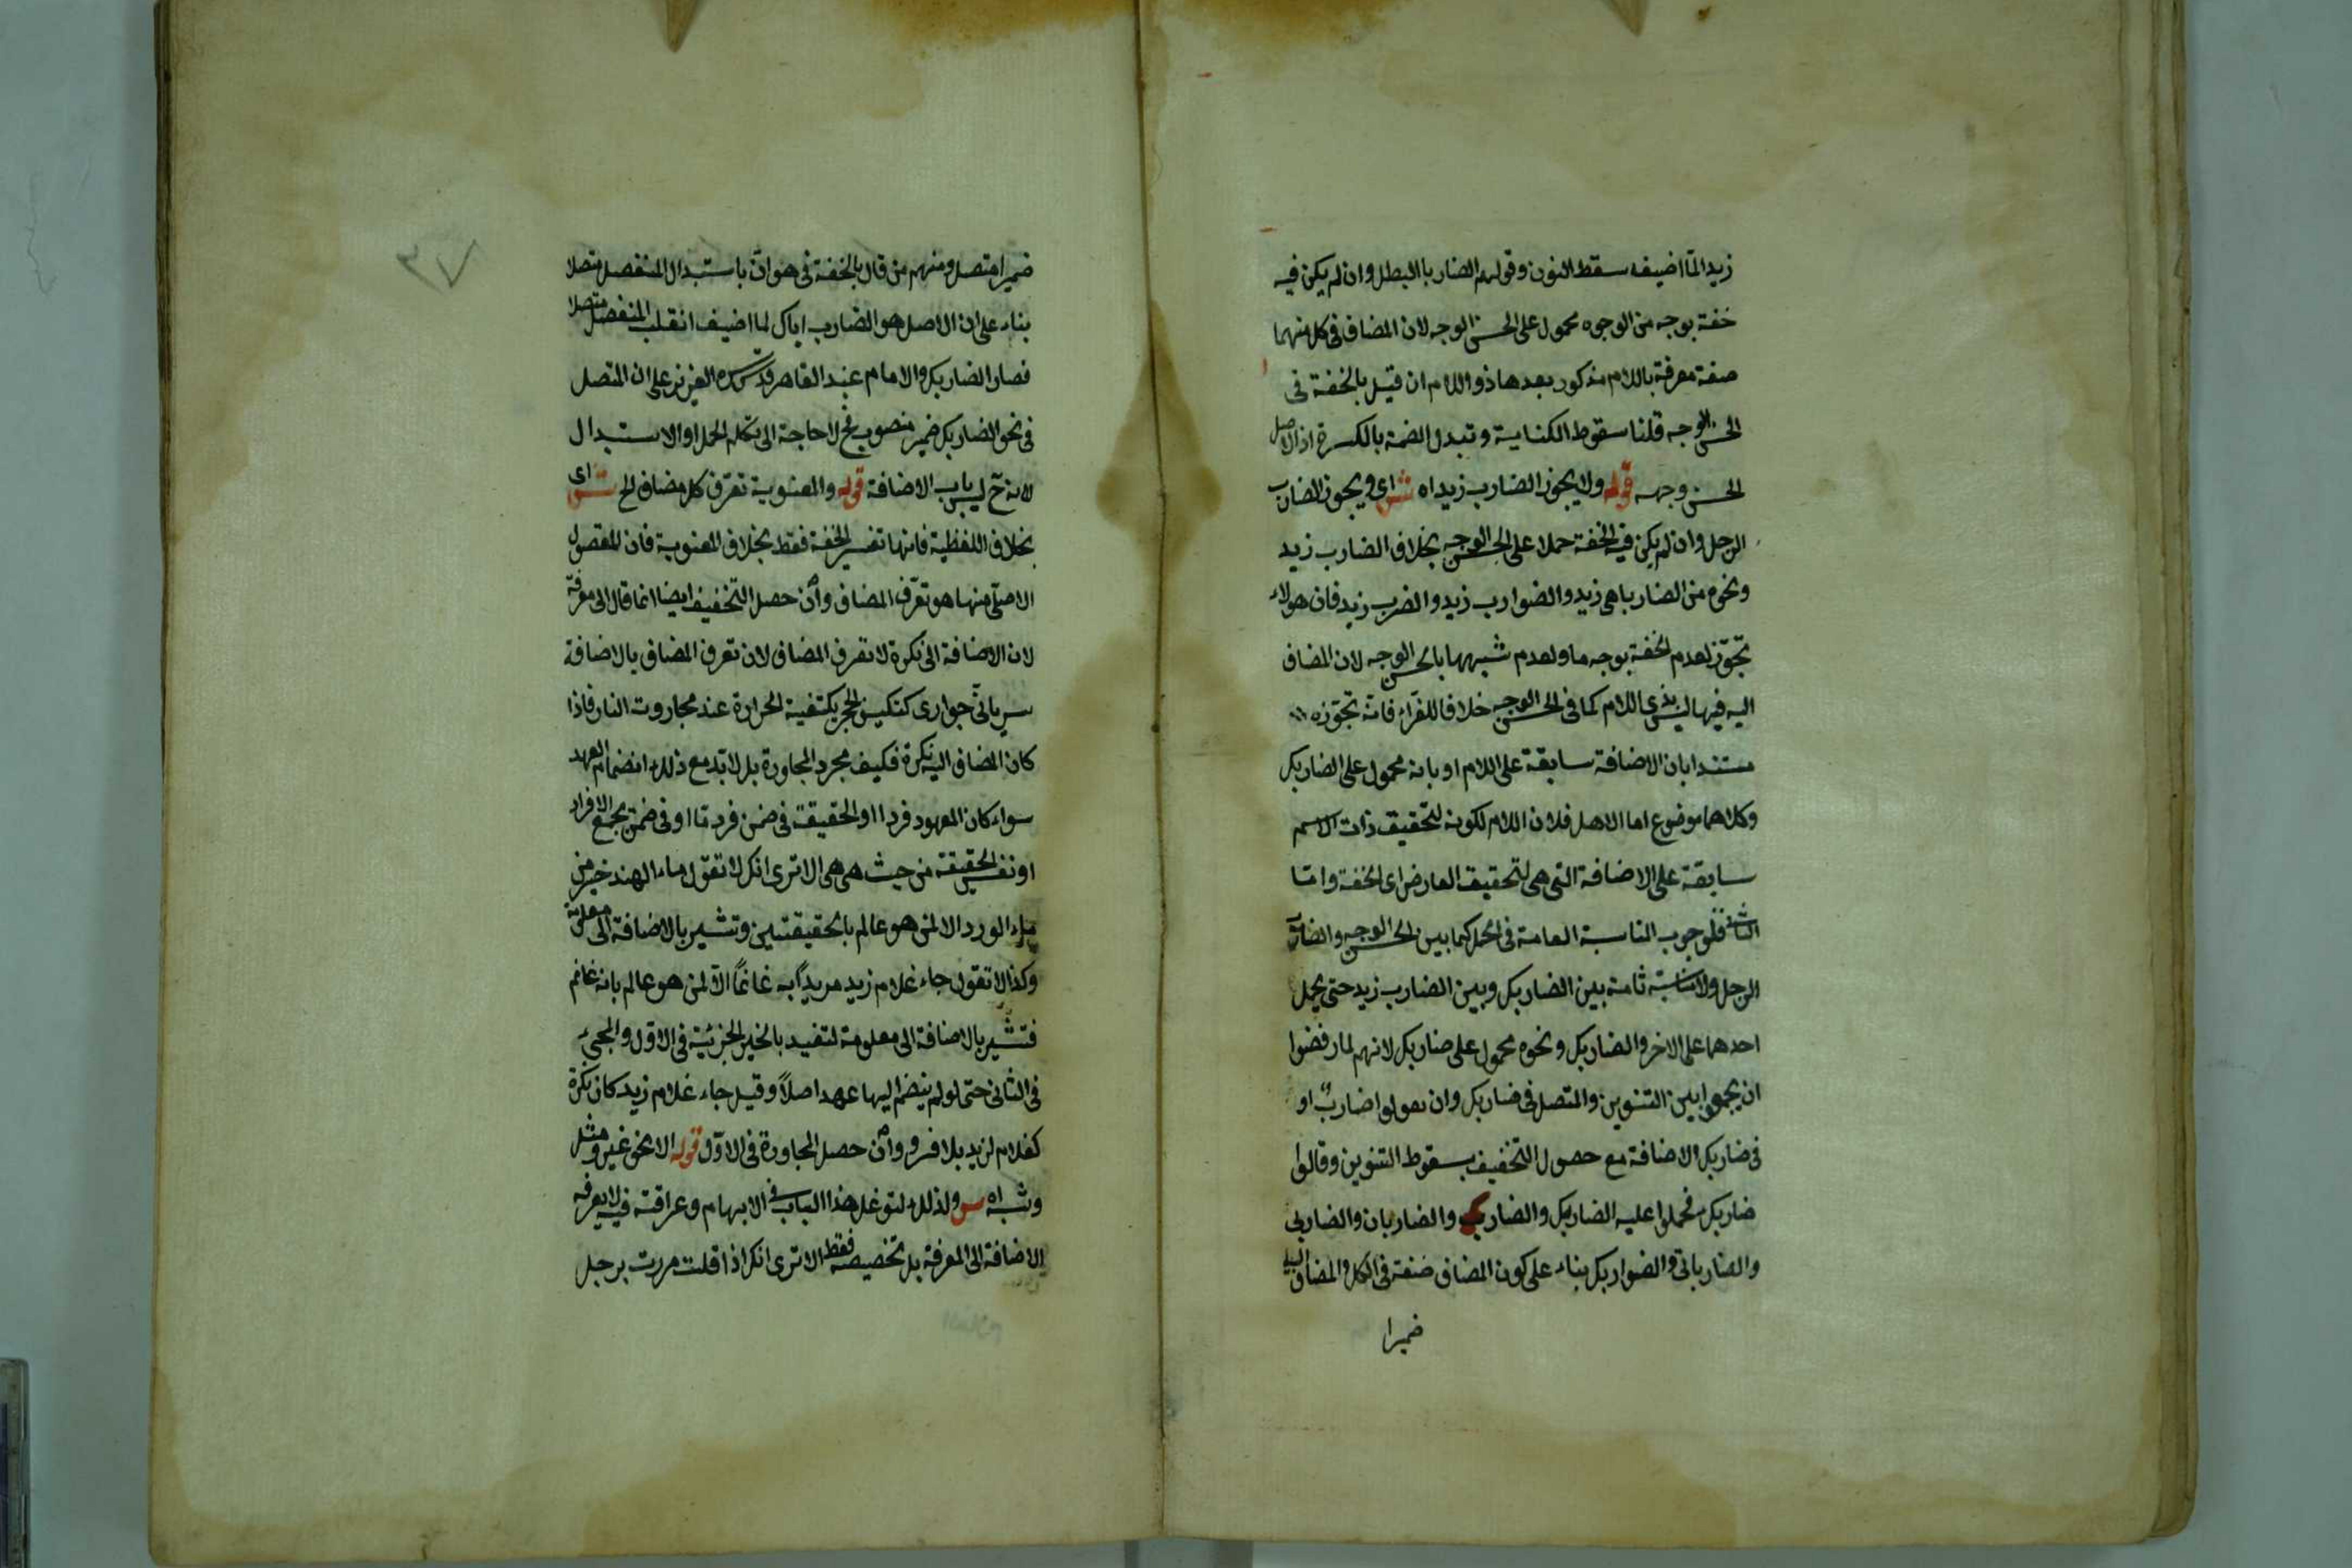 زيد المّا اضيف سقط النون وقولهم الضاربا البطل وان لم يكن فيه
خفة بوجه من الوجوه محمول على الحسن الوجه لان المضاف فى كل منهما
صفة معرفة باللام مذكور بعدها ذو اللام ان قيل بالخفة فى
الحسن الوجه قلنا سقوط الكناية وتبدل الضمة بالكسرة اذ الاصل
الحسن وجهه قوله ولا يجوز الضارب زيد اه ش اى ويجوز الضارب
الرجل وان لم يكن فيه الخفة حملا على الحسن الوجه بخلاف الضارب زيد
ونحوه من الضارباهى زيد والضوارب زيد والضرب زيد فان هولاء
تجوّز لعدم الخفة بوجه ما ولعدم شبهها بالحسن الوجه لان المضاف
اليه فيها ليس بذى اللام كما فى الحسن الوجه خلافا للفرّاء فانه تجوّزه
مستندا بان الاضافة سابقة على اللام او بانه محمول على الضاربك
وكلاهما موضوع اما الاهل فلان اللام لكونه لتحقيق ذات الاسم
سابقة على الاضافة التى هى لتحقيق العارض اى الخفة وامّا
الثانى فلوجوب المناسبة العامة فى الحمل كما بين الحسن الوجه والضارب
الرجل ولا مناسبة تامة بين الضاربك وبين الضارب زيد حتى يحمل
احدهما على الاخر والضاربك ونحوه محمول على ضاربك لانهم لما رفضوا
ان يجمعوا بين التنوين والمتصل فى ضاربك وان يقولوا ضاربٌ او
فى ضاربك الاضافة مع حصول التخفيف بسقوط التنوين وقالوا
ضاربك فحملوا عليه الضاربك والضاربى والضاربان والضاربى
والضارباتى والضواربك بناء على كون المضاف صفة فى الكل والمضاف اليه
ضميرا
ضميرا متصل ومنهم من قال بالخفة فى هواتى باستبدال المنفصل متصلا
بناء على ان الاصل هو الضارب اياك لما اضيف انقلب المنفصل متصلا
فصار الضاربك والامام عبد القاهر قدّس سره العزيز على ان المتصل
فى نحو الضاربك ضمير منصوب فح لا حاجة الى تكلم الحمل او الاستبدال
لانه ح ليس باب الاضافة قوله والمعنوية تعرّف كل مضاف الخ ش اى
بخلاف اللفظية فانها تفسير الخفة فقط بخلاف المعنوية فان المقصود
الاصلى منها هو تعرّف المضاف وان حصل التخفيف ايضا انما قال الى معرفة
لان الاضافة الى نكرة لا تعرف المضاف لان تعرف المضاف بالاضافة
سريانى جوارى كتكيف الحجر بكتفية الحرارة عند مجاروت النار فاذا
كان المضاف اليه نكرة فكيف مجرد المجاورة بل لا بد مع ذلك انضمام العهد
سواء كان المعهود فردا او الحقيقة فى ضمن فرد ما او فى ضمن جميع الافراد
او نفس الحقيقة من حيث هى هى الا ترى انك لا تقول ماء الهند خير من
ماء الورد الا لمن هو عالم بالحقيقتين وتشير بالاضافة الى معلومة
وكذا لا تقول جاء غلام زيد مريدًا به غانمًا الا لمن هو عالم بانه غانم
فتشير بالاضافة الى معلومة لتفيد بالخير الجزئية فى الاول والمجىء
فى الثانى حتى لو لم ينضم اليها عهد اصلاً وقيل جاء غلام زيد كان نكرة
كغلام لزيد بلا فرق وان حصل المجاورة فى الاول قوله الا نحو غير ومثل
وشبه اه س ولذلك لتوغل هذا الباب فى الابهام وعراقته فيه لا يعرفه
الاضافة الى المعرفة بل تخصيصه فقط الا ترى انك اذا قلت مررت برجل